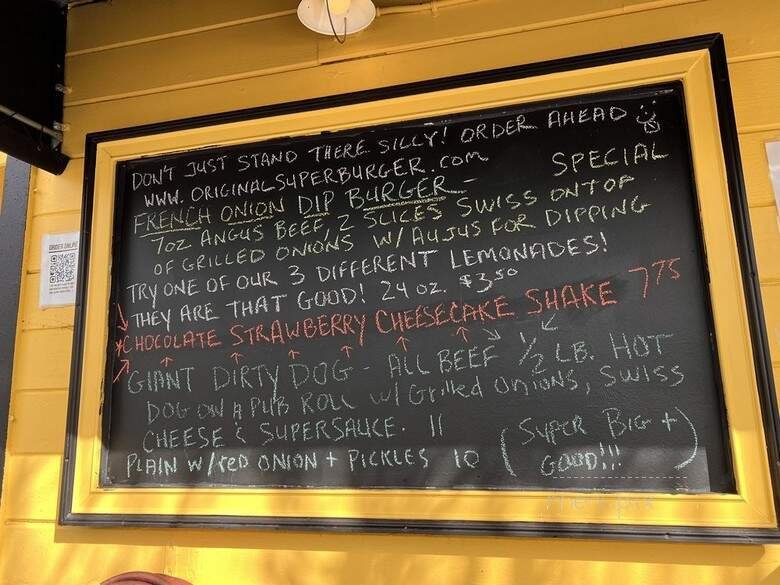 DON'T JUST STAND THERE SILLY! ORDER AHEAD
WWW. ORIGINALSUPERBURGER.COM
FRENCH ONION DIP BURGER - SPECIAL
7oz ANGUS BEEF, 2 SLICES SWISS ON TOP
OF GRILLED ONIONS W/ AUJUS FOR DIPPING
TRY ONE OF OUR 3 DIFFERENT LEMONADES!
THEY ARE THAT GOOD! 24 oz. $3.50
*CHOCOLATE STRAWBERRY CHEESECAKE SHAKE 7.75
GIANT DIRTY DOG - ALL BEEF 1/2 LB. HOT
DOG ON A PUB ROLL w/ Grilled onions, SWISS
CHEESE & SUPERSAUCE. 11
PLAIN W/red ONION + PICKLES 10
(SUPER BIG +
GOOD!!!)
ORDER ONLINE